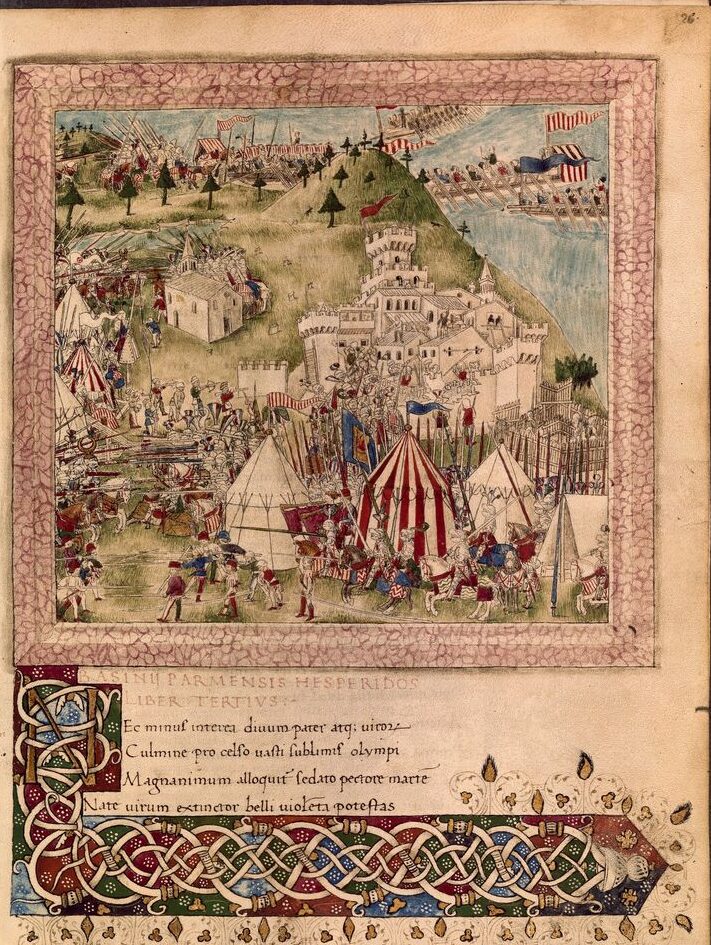 26
BASINII PARMENSIS HESPERIDOS
LIBER TERTIVS:-
NEc minus interea diuum pater atq; uirorz
Culmine pro celso uasti sublimis olympi
Magnanimum alloquit̃ sedato pectore martẽ
Nate uirum extinctor belli uiolẽta potestas